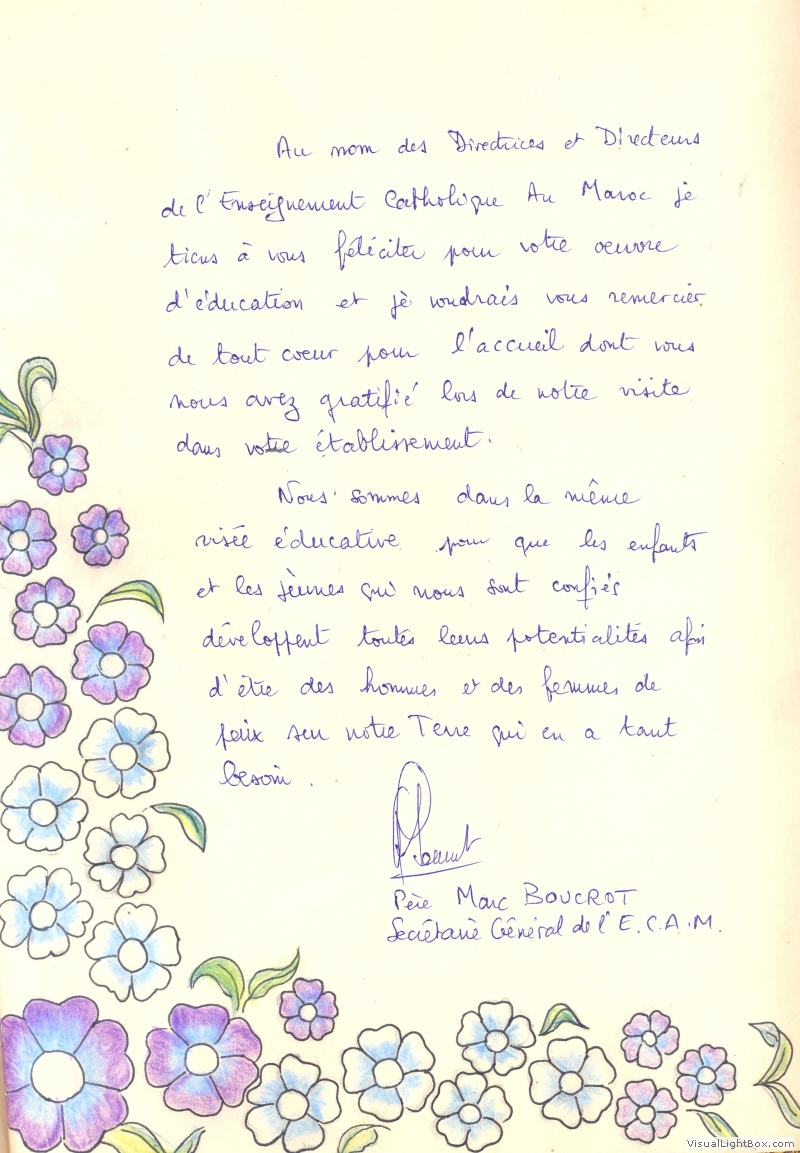 Au nom des Directrices et Directeurs
de l'Enseignement Catholique Au Maroc je
tiens à vous féliciter pour votre oeuvre
d'éducation et je voudrais vous remercier
de tout coeur pour l'accueil dont vous
nous avez gratifié lors de notre visite
dans votre établissement.
Nous sommes dans la même
visée éducative pour que les enfants
et les jeunes qui nous sont confiés
développent toutes leurs potentialités afin
d'être des hommes et des femmes de
paix sur notre Terre qui en a tant
besoin.
Père Marc BOUCROT
Secrétaire Général de l'E.C.A.M.
VisualLightBox.com